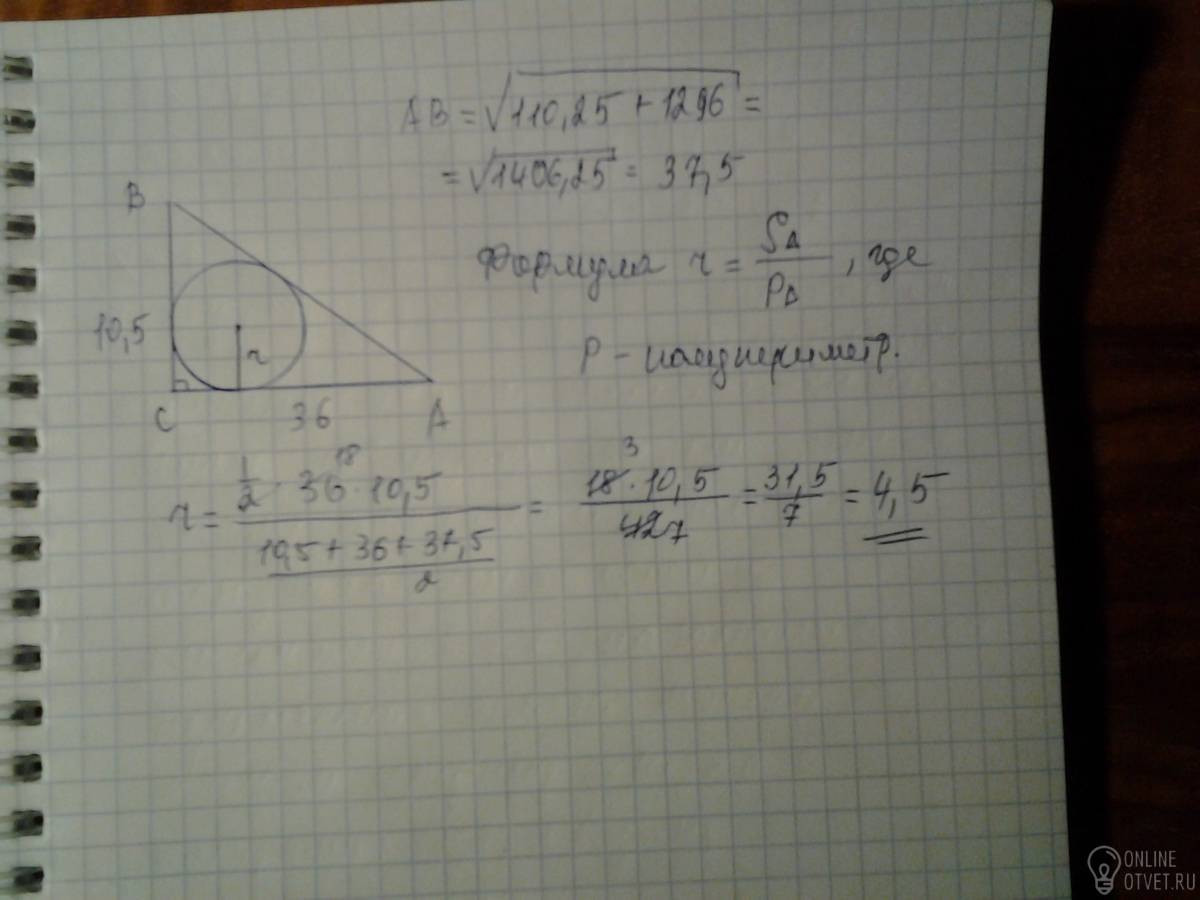 AB = √110,25 + 1296 =
= √1406,25 = 37,5
B
Формула r = S∆ / P∆ , где
10,5
r
P – полупериметр.
C 36 A
r = (1/2 · 36 18 · 10,5) / ((10,5 + 36 + 37,5) / 2) = (18 3 · 10,5) / (42 7) = 31,5 / 7 = 4,5
ONLINE
OTVET.RU